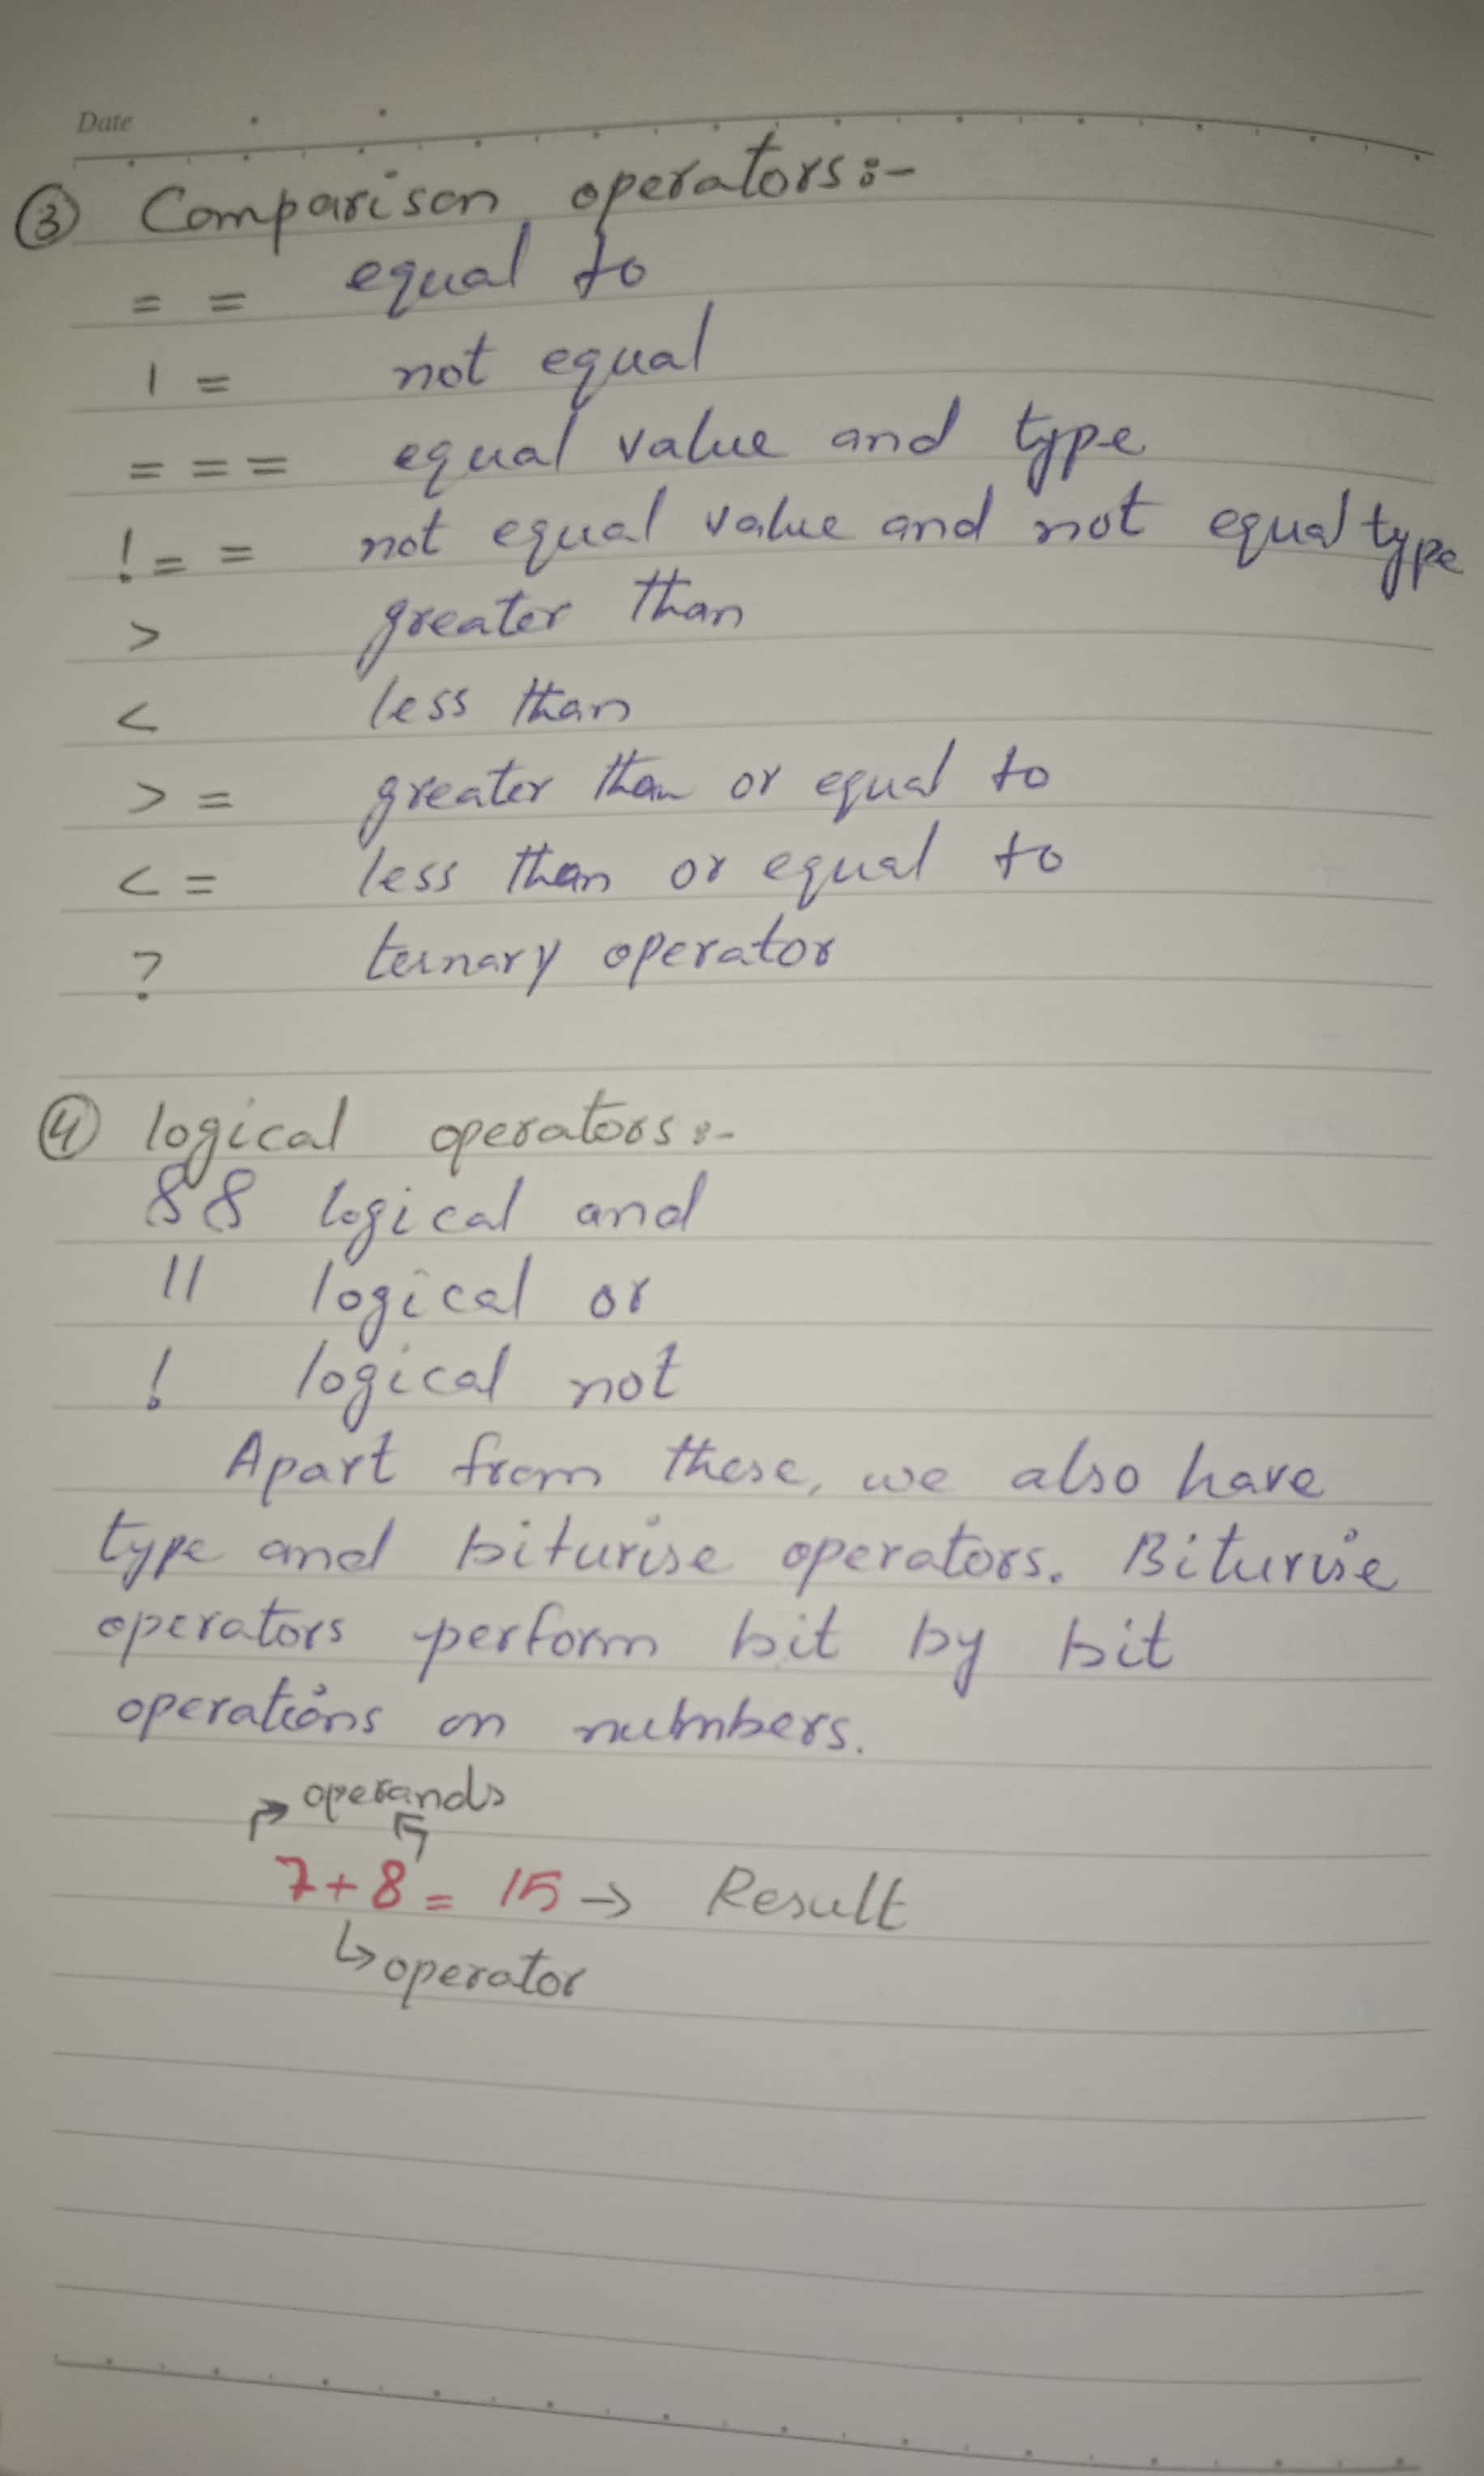 Date
③ Comparison operators:-
= = equal to
! = not equal
= = = equal value and type
! = = not equal value and not equal type
> greater than
< less than
> = greater than or equal to
< = less than or equal to
? ternary operator
④ logical operators:-
&& logical and
|| logical or
! logical not
Apart from these, we also have
type and biturise operators. Biturise
operators perform bit by bit
operations on numbers.
operands
7 + 8 = 15 → Result
↳ operator